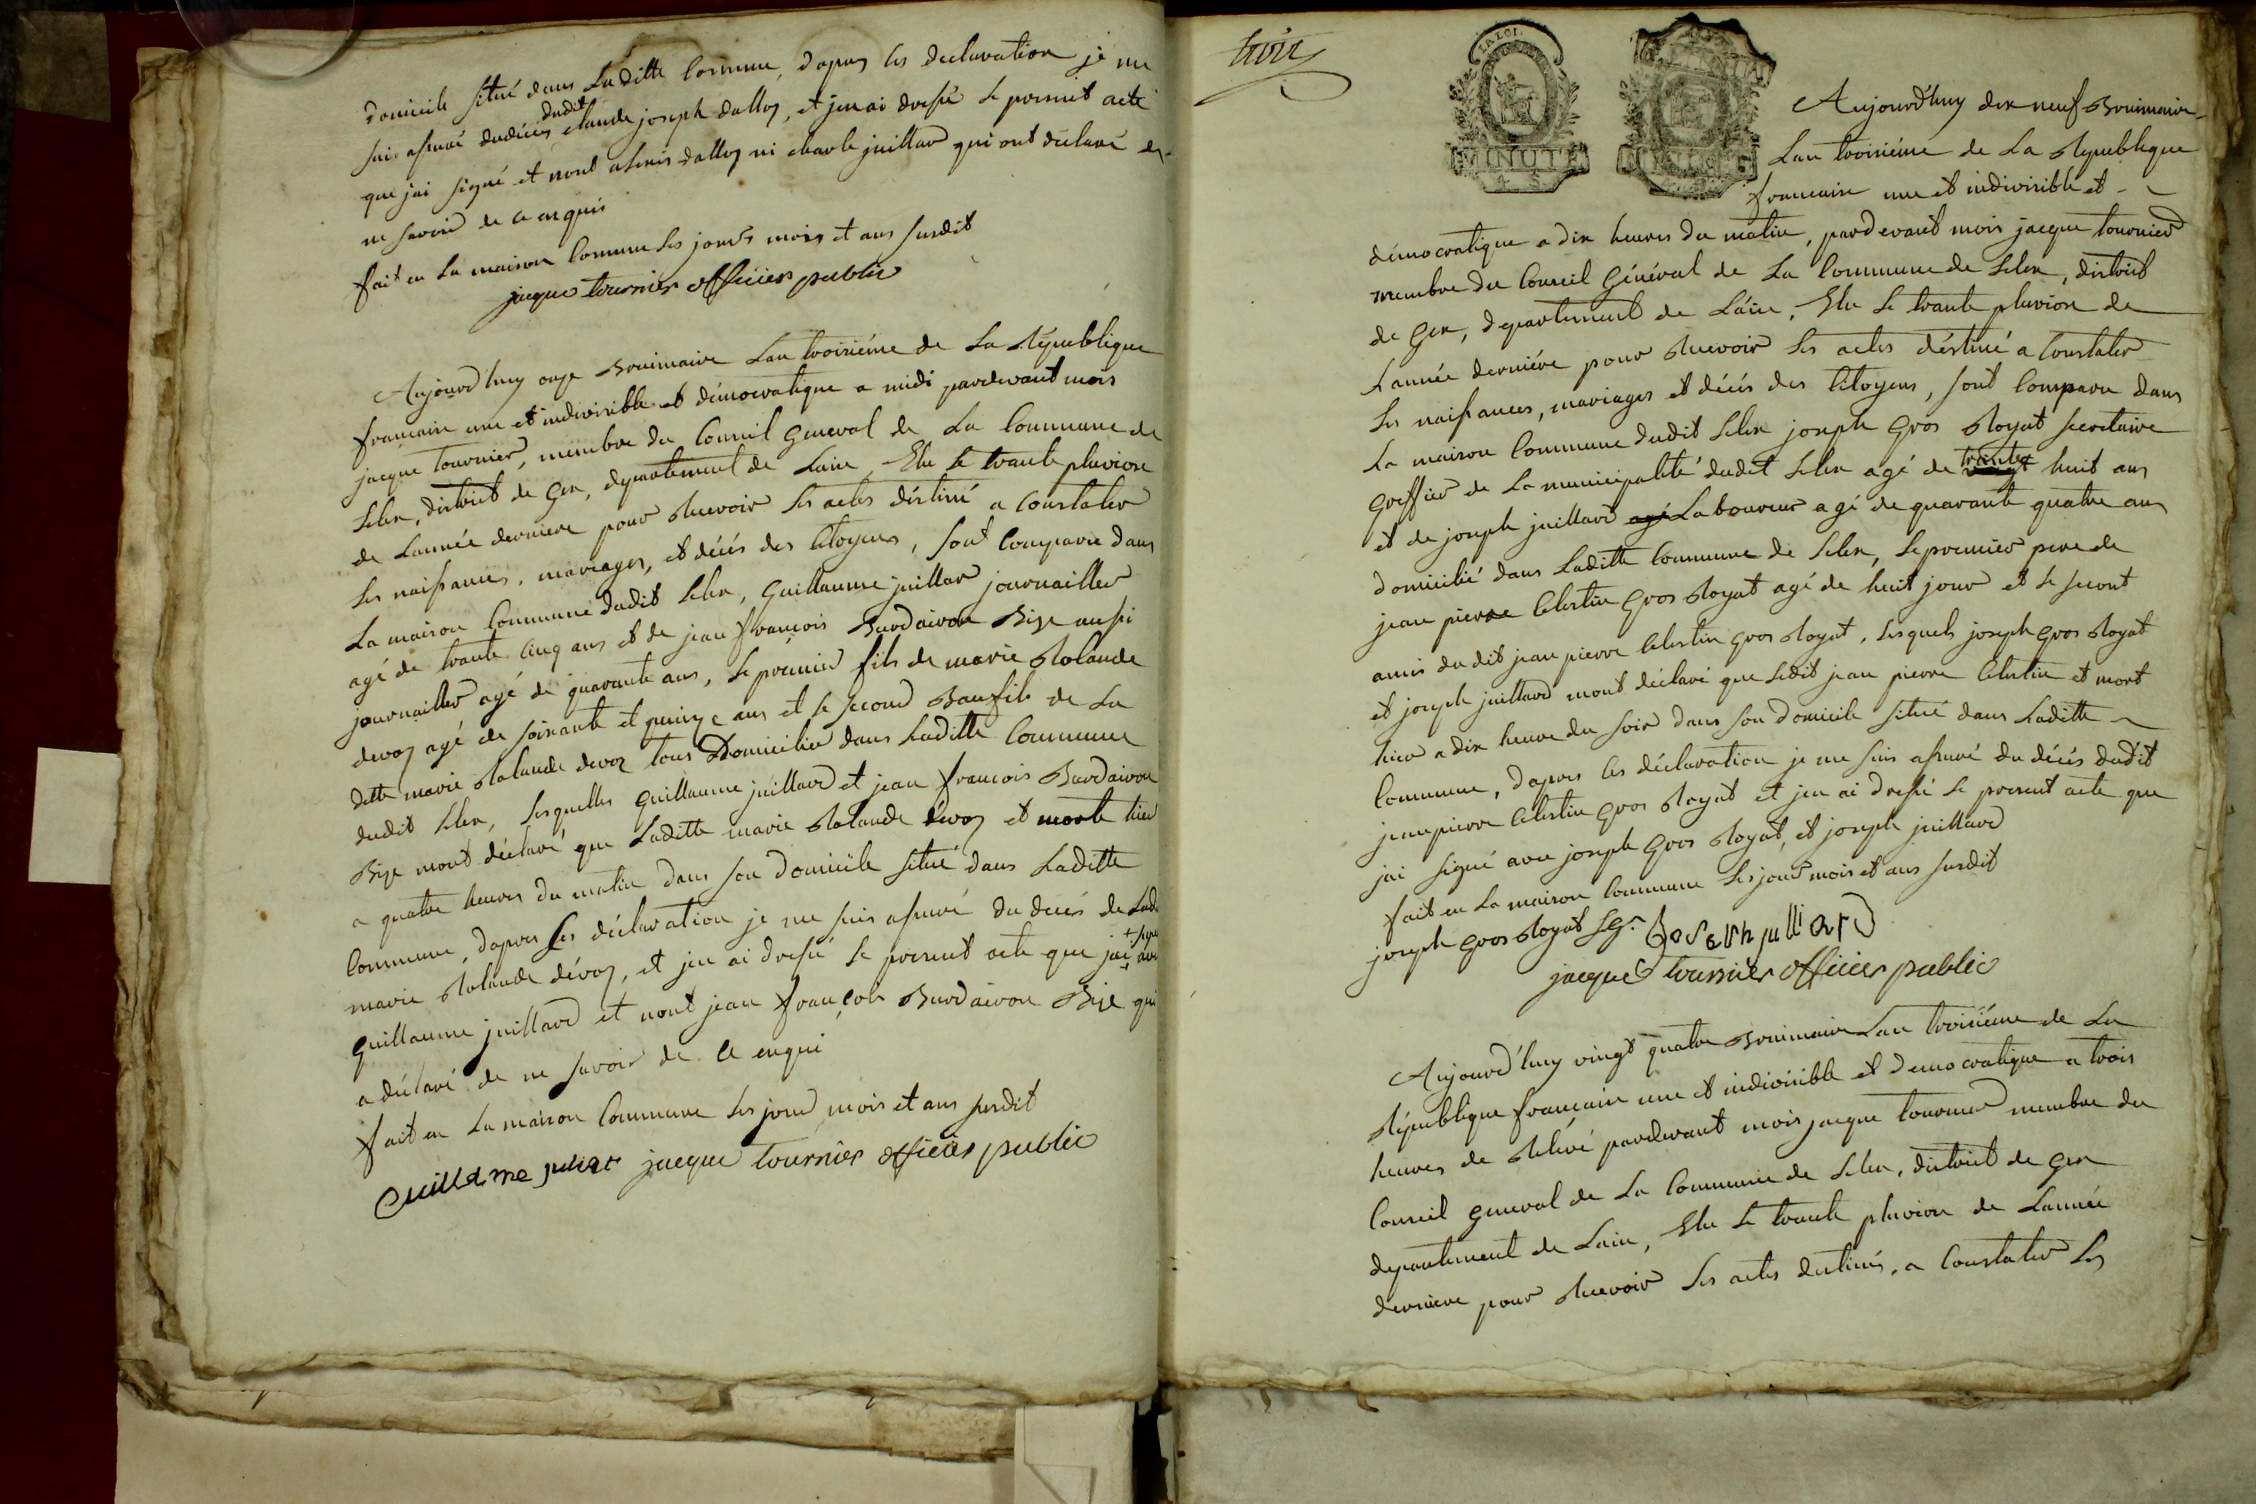 domicile situé dans Laditte Commune, dapres les declaration je me
suis assuré dudécés dudit claude joseph dalloz, et jenai dressé le present acte
que jai signé et nont alexis dalloz ni charle juillar qui ont déclaré de
ne savoir de ce enquis
fait en la maison Commune les jours mois et ans susdit
jacque tournier officier public
Aujourdhuy onze Brumaire Lan troisiéme de La République
francaise une et indivisible et démocratique a midi pardevant mois
jacque tournier, membre du Conseil general de La Commune de
Lelex, district de Gex, departement de Lain, Elu le trante pluviose
de Lannée derniere pour Recevoir les actes déstiné a Constater
les naissances, mariages, et décés des Citoyens, sont Comparu dans
La maison Commune dudit Lelex, Guillaume juillar journailler
agé de trante cinq ans et de jean françois Burdairon Bize aussi
journailler agé de quarante ans, le premier fils de marie Rolande
devoz agé de soixante et quinze ans et le second Baufils de La
ditte marie Rolande devoz tous Domicilié dans Laditte Commune
dudit Lelex, lesquelles Guillaume juillard et jean francois Burdairon
Bize mont déclaré que Laditte marie Rolande dévoz et morte hier
a quatre heures du matin dans son domicile situé dans Laditte
Commune, dapres les déclaration je me suis assuré du decés de Lad
marie Rolande dévoz, et jen ai dressé le present acte que jai + signé avec
Guillaume juillard et nont jean françois Burdairon Bize qui
a déclaré de ne savoir de ce enqui
fait en La maison Commune les jour mois et ans susdit
Guillame juliar jacque tournier officier public
trois
LA LOI
MINUTE
4 S
Aujourd'huy dix neuf Brumaire
Lan troisiéme de La Republique
francaise une et indivisible et
démocratique a dix heures du matin, pardevant mois jacque tournier
membre du Conseil Général de La Commune de Lelex, district
de Gex, departement de Láin, Elu le trante pluviose de
Lannée derniére pour Recevoir les actes déstiné a Constater
les naissances, mariages et décés des Citoyens, sont Comparu dans
La maison Commune dudit Lelex joseph Gros Royat secretaire
Greffier de La municipalité dudit Lelex agé de trante huit ans
et de joseph juillard agé Laboureur agé de quarante quatre ans
domicilié dans Laditte Commune de Lelex, le premier pere de
jean pierre Celestin Gros Royat agé de huit jour et le secont
amis dudit jean pierre Celestin Gros Royat, lesquels joseph Gros Royat
et joseph juillard mont déclaré que ledit jean pierre Celestin et mort
hier a dix heure du soir dans son domicile situé dans Laditte
Commune, dapres les déclaration je me suis assuré du décés dudit
jean pierre Celestin Gros Royat et jen ai dressé le present acte que
jai signé avec joseph Gros Royat, et joseph juillard
fait en La maison Commune les jour mois et ans susdit
joseph Gros Royat Sgr. Joseph julliard
jacque tournier officier public
Aujourd'huy vingt quatre Brumaire Lan troisiéme de La
République francaise une et indivisible et democratique a trois
heures de Relevé pardevant mois jacque tournier membre du
Conseil general de La Commune de Lelex, district de Gex
departement de Lain, Elu le trante pluviose de Lannée
derniere pour Recevoir les actes destinés, a Constater les